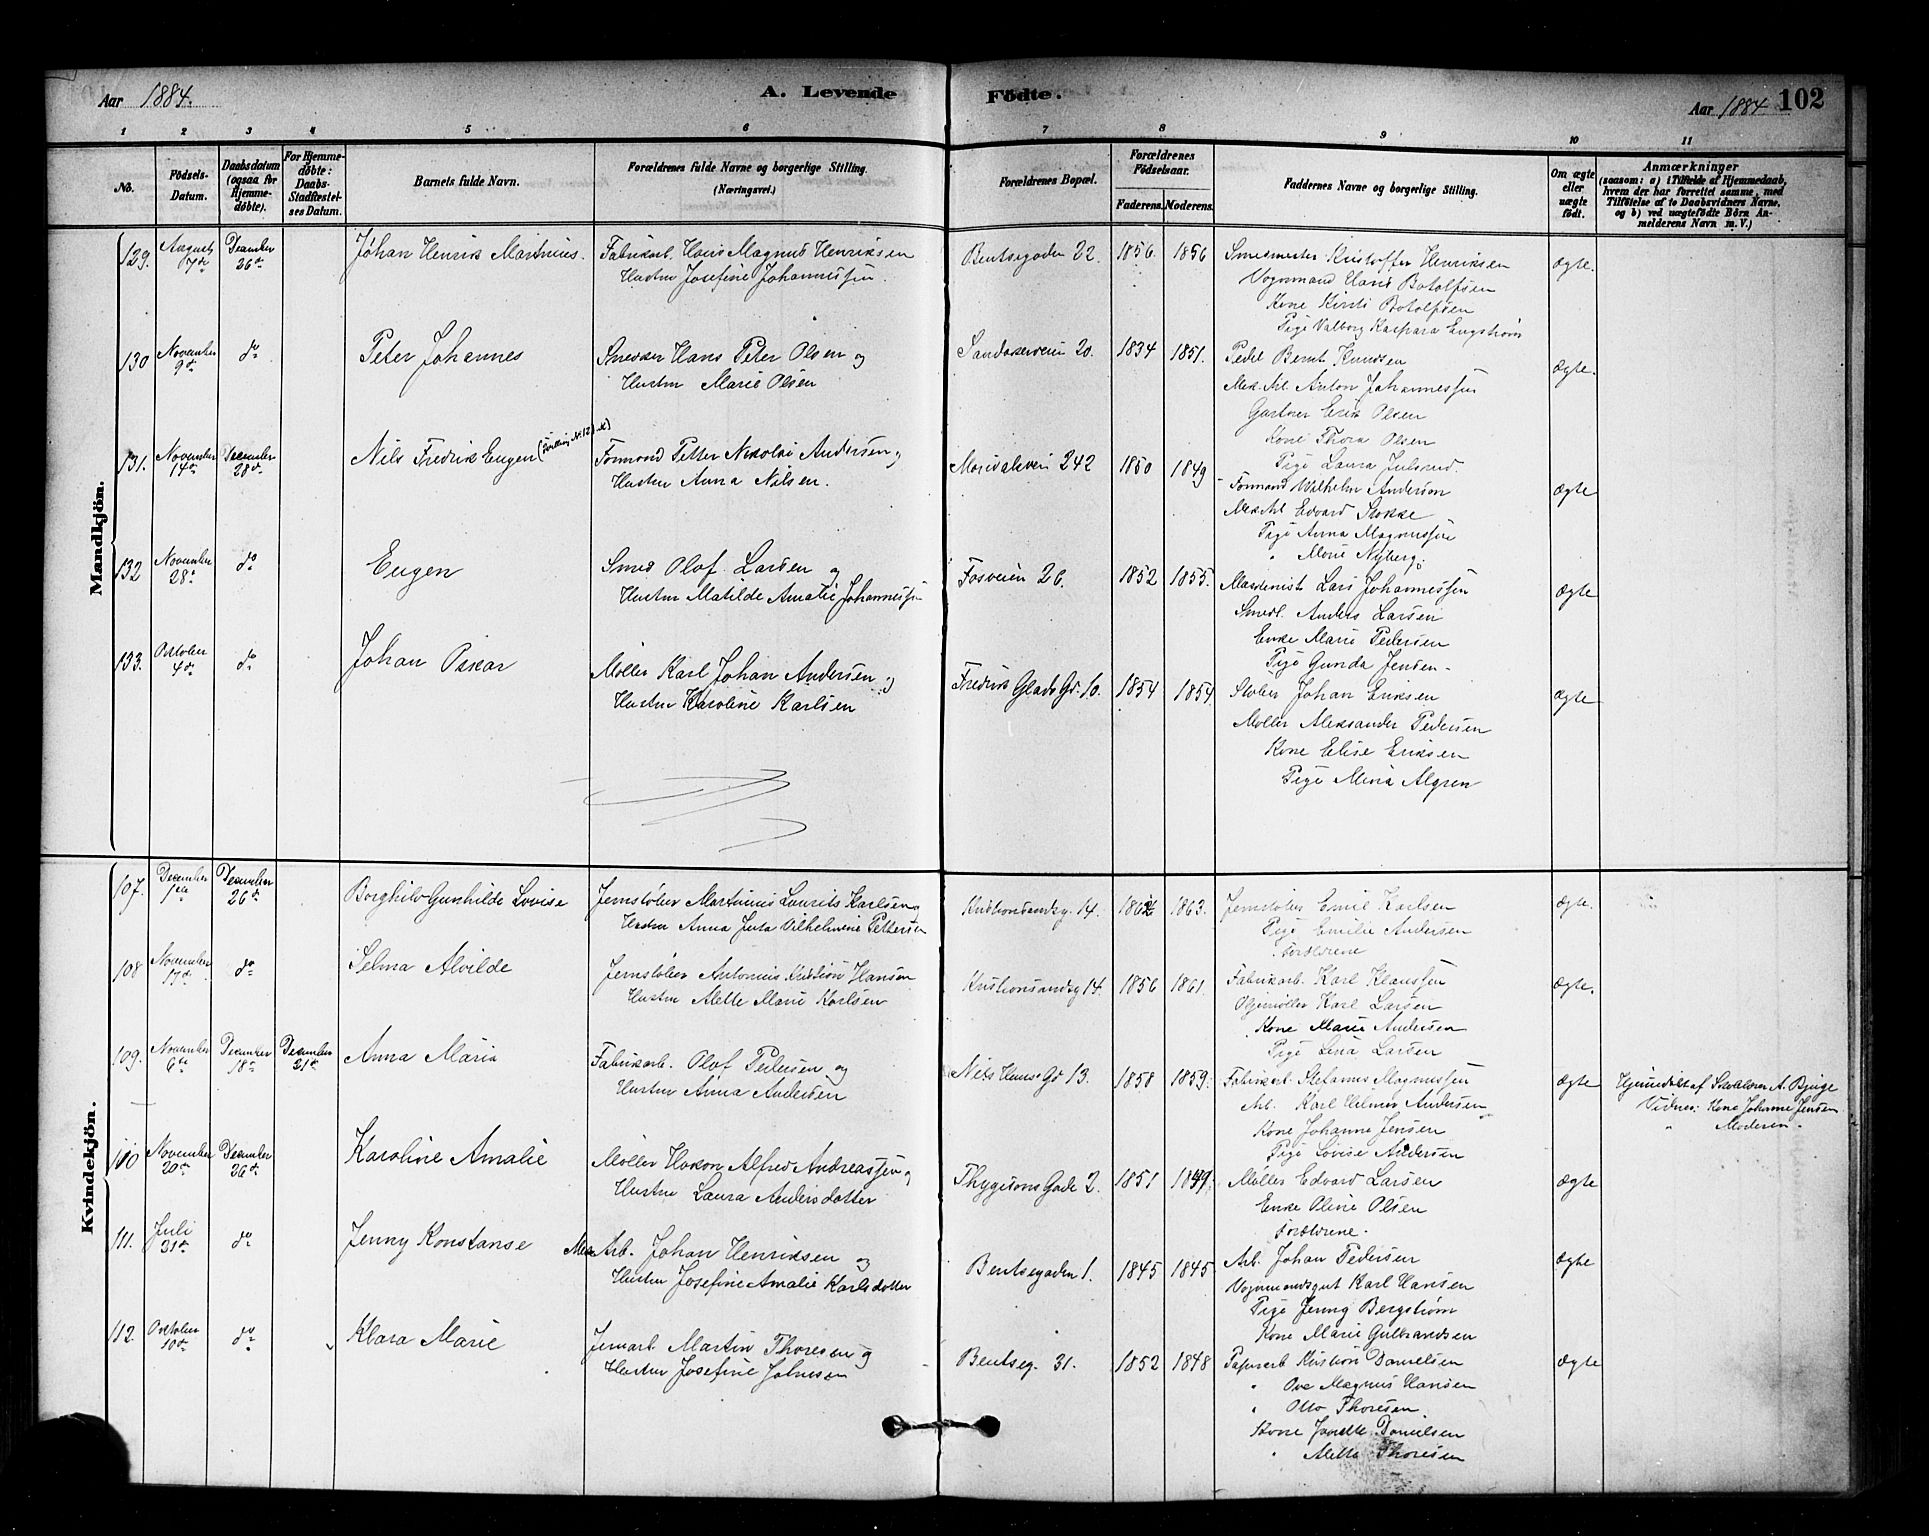 Aar 1884.
A. Levende Födte.
Aar 1884 102
1 2 3 4 5 6 7 8 9 10 11
No.
Födsels-Datum.
Daabsdatum (ogsaa for Hjemme-døbte).
For Hjemme-døbte: Daabs-Stadfæstel-ses Datum.
Barnets fulde Navn.
Forældrenes fulde Navne og borgerlige Stilling. (Næringsvei.)
Forældrenes Bopæl.
Forældrenes Födselsaar.
Faderens. Moderens.
Faddernes Navne og borgerlige Stilling.
Om ægte eller uægte født.
Anmærkninger
(saasom: a) i Tilfælde af Hjemmedaab, hvem der har forrettet samme, med Tilföielse af to Daabsvidners Navne, og b) ved uægtefödte Börn An-melderens Navn m.V.)
Mandkjön.
129. August 7de December 26de Johan Henrik Martinius. Fabrikarb. Hans Magnus Henriksen
Hustru Josefine Johannessen.
Bentsegaden 22. 1856 1856
Smedmester Kristoffer Henriksen
Vognmand Hans Botolfsen
Kone Kirsti Botolfsen
Pige Valborg Kaspara Engstrøm
Ægte.
130 November 9de do Peter Johannes
Snekker Hans Peter Olsen og
Hustru Marie Olsen
Sandakerveien 20. 1834 1851.
Pedel Bernt Knudsen
Mek. Arb. Anton Johannessen
Gartner Erik Olsen
Kone Thora Olsen
Pige Laura Julsrud.
Ægte.
131. November 14de December 28de Nils Fredrik Eugen
Formand Petter Nikolai Andersen og
Hustru Anna Nilsen.
Maridalsveien 242 1850 1849
Formand Wilhelm Andersen
Mek. Arb. Edvard Stokke
Pige Anna Magnussen
" Marie Nyberg.
Ægte
132 November 28de do Eugen
Smed Olof Larsen og
Hustru Matilde Amalie Johannessen
Fosveien 26. 1852 1855.
Maskinist Lars Johannessen
Smedl. Anders Larsen
Enke Marie Pedersen
Pige Gunda Jensen.
Ægte
133. Oktober 4de do Johan Oskar
Møller Karl Johan Andersen og
Hustru Karoline Karlsen
Fredrik Glads Gd. 10. 1854 1854
Støber Johan Eriksen
Møller Aleksander Pedersen
Kone Elise Eriksen
Pige Mina Algren
Ægte
Kvindekjön.
107. December 1ste December 26de Borghild Gunhilde Lovise
Jernstøber Martinius Laurits Karlsen og
Hustru Anna Jula Vilhelmine Pettersen
Kristiansandsg. 14. 1862 1863.
Jernstøber Emil Karlsen
Pige Emilie Andersen
Forældrene
Ægte.
108 November 17de do Selma Alvilde
Jernstøber Antonius Kristian Hansen
Hustru Alette Marie Karlsen
Kristiansandsg 14. 1856 1861.
Fabrikarb. Karl Klaussen
Oljemøller Karl Larsen
Kone Marie Andersen
Pige Lina Larsen
Ægte.
109. November 6te December 18de December 21de Anna Maria
Fabrikarb. Olof Pedersen og
Hustru Anna Andersen
Nils Huus' Gd 13. 1858 1859.
Fabrikarb Stefanus Magnussen
Arb. Karl Hilmar Andersen
Kone Johanne Jensen
Pige Lovise Andersen
Ægte
Hjemdøbt af A. Bjuge
Vidner: Kone Johanne Jensen
" Moderen.
110 November 20de December 26de Karoline Amalie
Møller Hakon Alfred Andreassen og
Hustru Laura Andersdatter
Thygesons Gade 2. 1851 1849.
Møller Edvard Larsen
Enke Oline Olsen
Forældrene.
Ægte
111. Juli 31de do Jenny Konstanse
Mek. Arb. Johan Henriksen og
Hustru Josefine Amalie Karlsdatter
Bentsegaden 1. 1845 1845
Arb. Johan Pedersen
Vognmandsgut Karl Hansen
Pige Jenny Bergstrøm
Kone Marie Gulbrandsen
Ægte
112. Oktober 10de do Klara Marie
Jernarb Martin Thoresen og
Hustru Josefine Johnsen
Bentseg. 31. 1852 1848
Papirarb Kristian Danielsen
" Ove Magnus Hansen
" Otto Thoresen
Kone Janette Danielsen
" Aletta Thoresen
Ægte